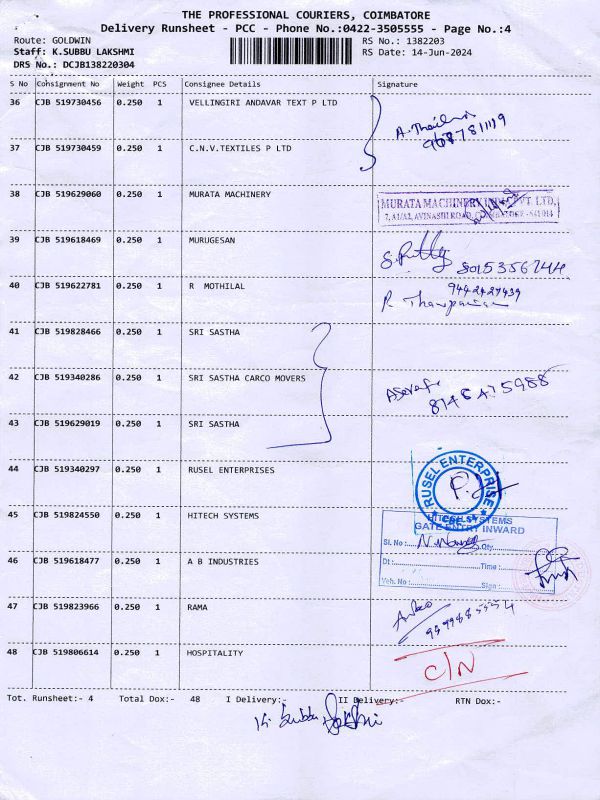 THE PROFESSIONAL COURIERS, COIMBATORE
Delivery Runsheet - PCC - Phone No.:0422-3505555 - Page No.:4
Route: GOLDWIN RS No.: 1382203
Staff: K.SUBBU LAKSHMI RS Date: 14-Jun-2024
DRS No.: DCJB138220304
S No Consignment No Weight PCS Consignee Details Signature
36 CJB 519730456 0.250 1 VELLINGIRI ANDAVAR TEXT P LTD
37 CJB 519730459 0.250 1 C.N.V.TEXTILES P LTD
38 CJB 519629060 0.250 1 MURATA MACHINERY
MURATA MACHINERY PVT. LTD.
7, A1/A2, AVINASHI ROAD, COIMBATORE - 641014
39 CJB 519618469 0.250 1 MURUGESAN
8015356744
40 CJB 519622781 0.250 1 R MOTHILAL
9442427439
41 CJB 519828466 0.250 1 SRI SASTHA
42 CJB 519340286 0.250 1 SRI SASTHA CARCO MOVERS
43 CJB 519629019 0.250 1 SRI SASTHA
44 CJB 519340297 0.250 1 RUSEL ENTERPRISES
RUSEL ENTERPRISE
45 CJB 519824550 0.250 1 HITECH SYSTEMS
HITECH SYSTEMS
GATE ENTRY INWARD
Sl. No : Qty
Dt : Time :
Veh. No : Sign :
46 CJB 519618477 0.250 1 A B INDUSTRIES
47 CJB 519823966 0.250 1 RAMA
48 CJB 519806614 0.250 1 HOSPITALITY
C/N
Tot. Runsheet:- 4 Total Dox:- 48 I Delivery:- II Delivery:- RTN Dox:-
K. Subbu Lakshmi